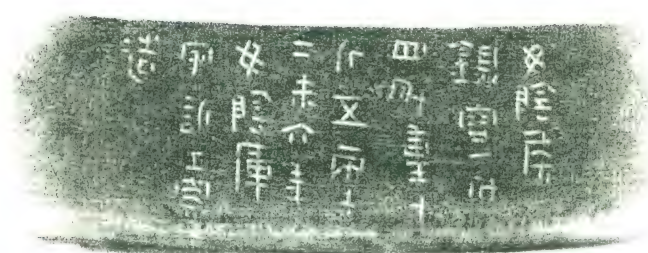 女陰侯
鋗容一斗
四升重十
斤五兩十
二朱六年
女陰庫
守訢工
造